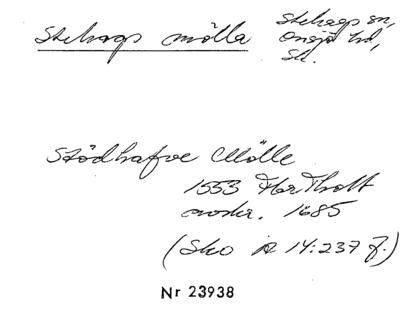 Stehags mölla
Stehags sn,
Onsjö hd,
Sk.
Stödhafve Mölle
1553 Har Thott
modr. 1685
(Sko A 14:237 f.)
Nr 23938